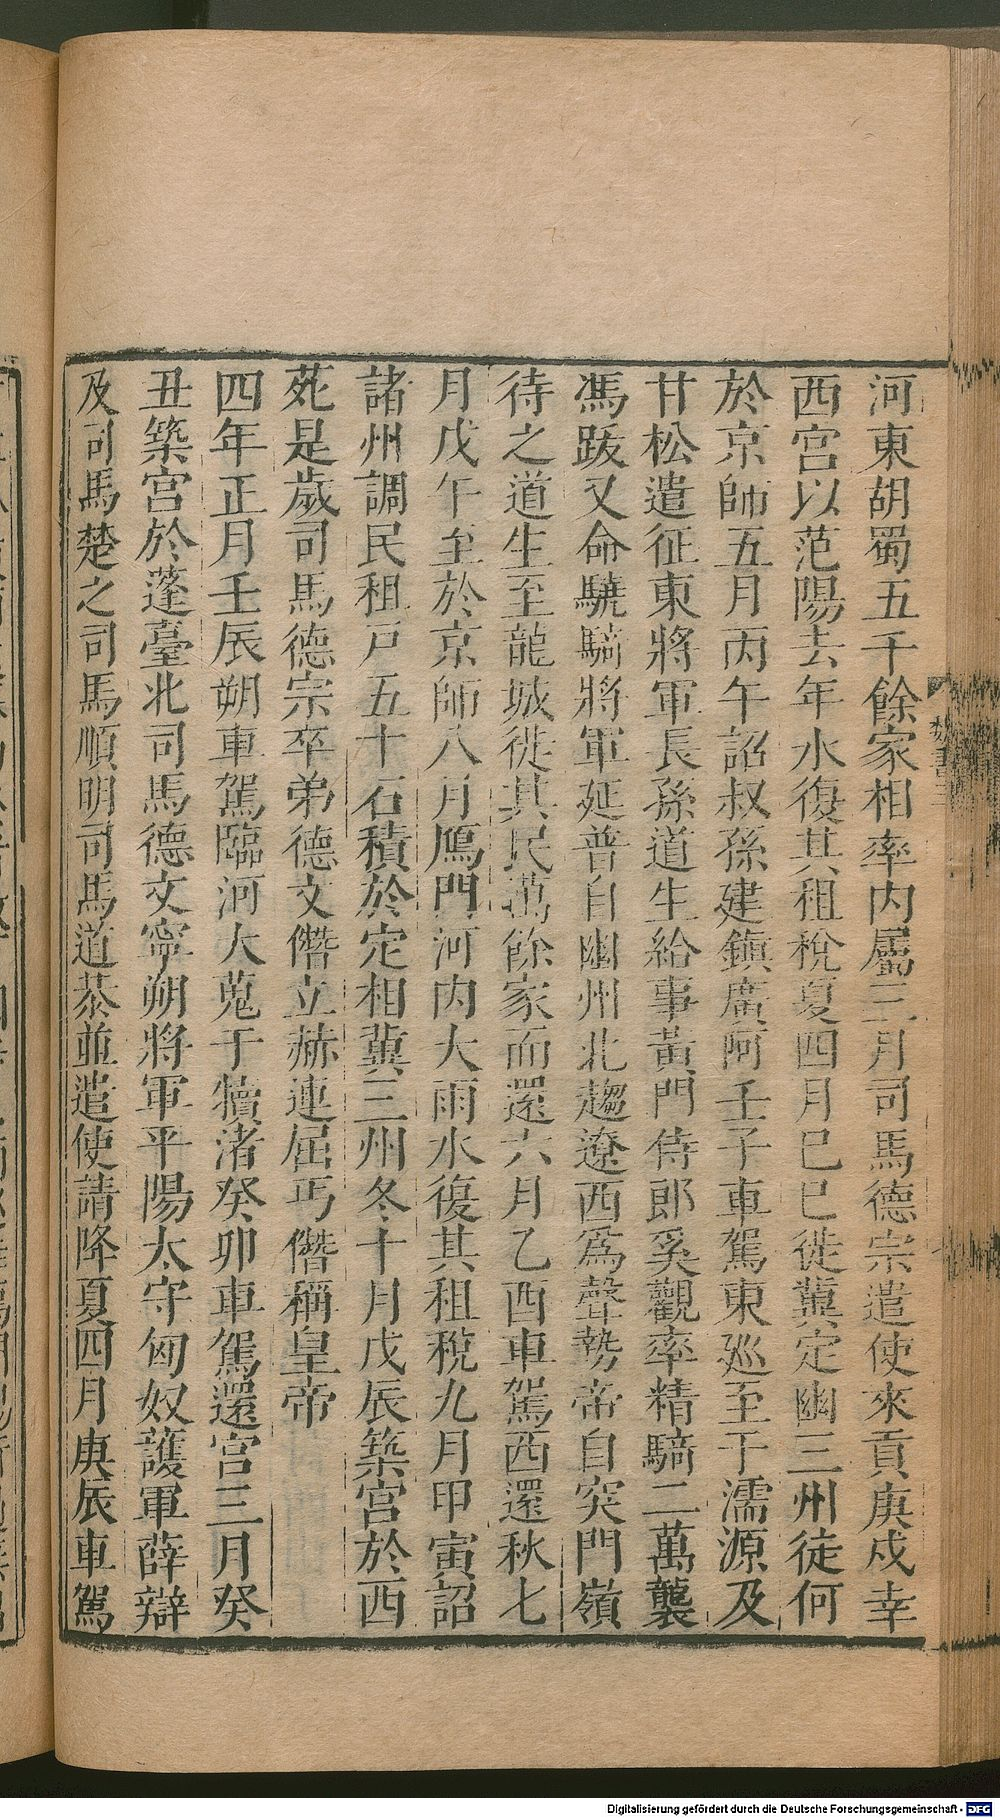 河東胡蜀五千餘家相率內屬三月司馬德宗遣使來貢庚戌幸
西宮以范陽去年水復其租稅夏四月己巳徙冀定幽三州徒何
於京師五月丙午詔叔孫建鎮廣阿壬子車駕東巡至于濡源及
甘松遣征東將軍長孫道生給事黃門侍郎奚觀率精騎二萬襲
馮跋又命驍騎將軍延普自幽州北趨遼西爲聲勢帝自突門嶺
待之道生至龍城徙其民萬餘家而還六月乙酉車駕西還秋七
月戊午至於京師八月鴈門河內大雨水復其租稅九月甲寅詔
諸州調民租戶五十石積於定相冀三州冬十月戊辰築宮於西
苑是歲司馬德宗卒弟德文僭立赫連屈丐僭稱皇帝
四年正月壬辰朔車駕臨河大蒐于犢渚癸卯車駕還宮三月癸
丑築宮於蓬臺北司馬德文寧朔將軍平陽太守匈奴護軍薛辯
及司馬楚之司馬順明司馬道恭並遣使請降夏四月庚辰車駕
魏書
Digitalisierung gefördert durch die Deutsche Forschungsgemeinschaft - DFG